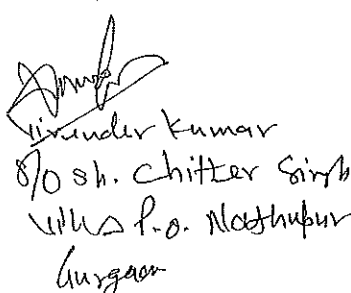 Virender Kumar
S/o Sh. Chitter Singh
Vill & P.O. Nathupur
Gurgaon